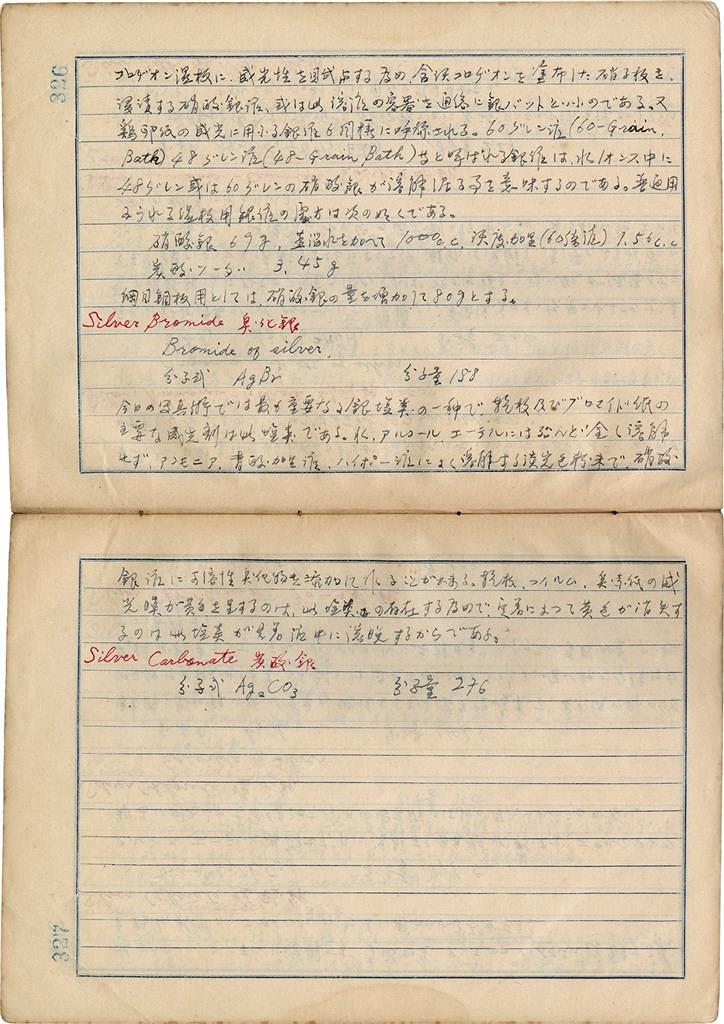 326
コロヂオン湿板に、感光性を附与する為め、含沃コロヂオンを塗布した硝子板を、
浸漬する硝酸銀液、或は此溶液の容器を通俗に銀バットといふのである。又
鶏卵紙の感光に用ふる銀液も同様に呼称される。60グレン液(60-Grain,
Bath) 48グレン液(48-Grain Bath)等と呼ばれる銀液は、水1オンス中に
48グレン或は60グレンの硝酸銀が溶解し居る事を意味するのである。普通用
ゐられる湿板用銀液の処方は次の如くである。
硝酸銀 69g, 蒸溜水を加へて 1000c.c, 沃度加里(60倍液) 1.56c.c
炭酸ソーダ 3.45g
網目銅板用としては、硝酸銀の量を増加して80gとする。
Silver Bromide 臭化銀
Bromide of silver,
分子式 AgBr 分子量 188
今日の写真術では最も重要なる銀塩類の一種で、乾板及びブロマイド紙の
主要な感光剤は此塩類である。水、アルコール、エーテルには殆んど全く溶解
せず、アンモニア、青酸加里液、ハイポー液によく溶解する淡黄色粉末で、硝酸
銀液に可溶性臭化物を添加して作ることが出来る。乾板、フイルム、臭素紙の感
光膜が黄色を呈するのは、此塩類の存在する為めで、定着によつて黄色が消失す
るのは此塩類が定着液中に溶脱するからである。
Silver Carbonate 炭酸銀
分子式 Ag₂CO₃ 分子量 276
327